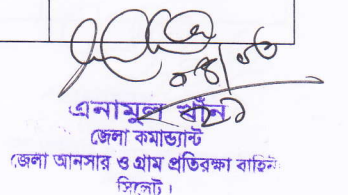 এনামুল খাঁন
জেলা কমান্ড্যান্ট
জেলা আনসার ও গ্রাম প্রতিরক্ষা বাহিনী
সিলেট।